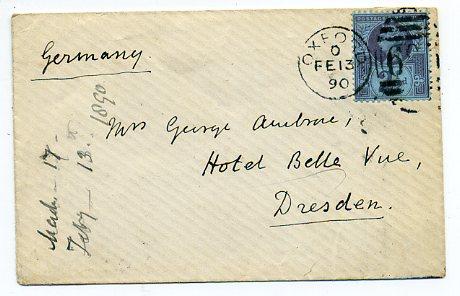 Germany.
OXFORD
O
FE 13
90
POSTAGE
Mrs George Ambrose,
Hotel Belle Vue,
Dresden.
17
13th 1890